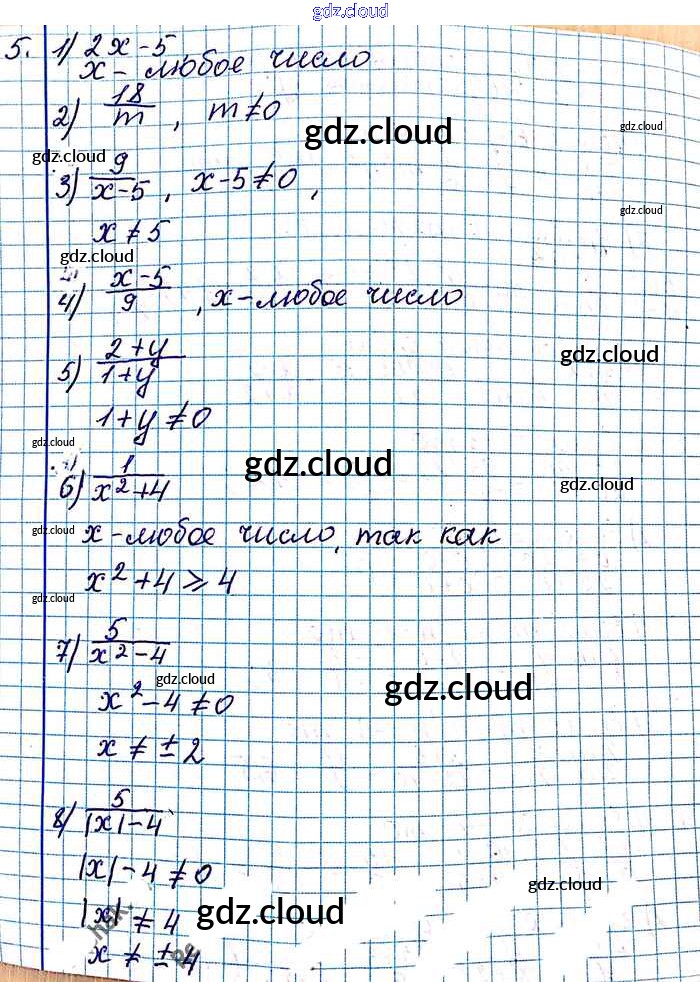 gdz.cloud
5. 1) 2x-5
x - любое число
2) 18/m , m≠0
gdz.cloud
gdz.cloud
gdz.cloud
3) 9/(x-5) , x-5≠0 ,
gdz.cloud
x≠5
gdz.cloud
4) (x-5)/9 , x-любое число
5) (2+y)/(1+y)
gdz.cloud
1+y≠0
gdz.cloud
gdz.cloud
6) 1/(x²+4)
gdz.cloud
x-любое число, так как
gdz.cloud
x²+4⩾4
gdz.cloud
7) 5/(x²-4)
gdz.cloud
gdz.cloud
x²-4≠0
x≠±2
8) 5/(|x|-4)
|x|-4≠0
gdz.cloud
|x|≠4
gdz.cloud
x≠±4